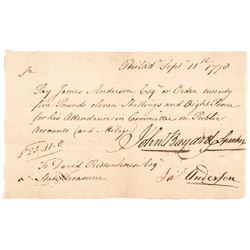 Philad Sept 11th 1778
Sir
Pay James Anderson Esqr or Order twenty
five Pounds eleven Shillings and Eight Pence
for his Attendance in Committee on Public
Accounts (and Milage)
£25.11.8 John Bayard Speaker
To David Rittenhouse Esqr
Treasurer Jas Anderson